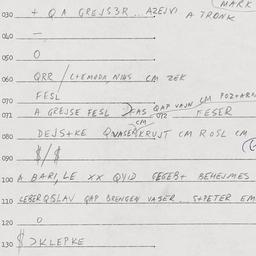 (MARK
030 + Q A GREJS3R ... AZEJVI A TRONK
040 —
050 O
060 QRR / L+EMODA, NIWS CM ZEK
070 FESL
071 A GREJSE FESL FAS QAP VAJN CM
072 CM FESER
080 DEJS+KE QVASER KRUJT CM ROSL CM
090 $/$
100 A BARI, LE XX QVID GEGEB+ BEHEJMES
110 QAP BRENGEN VASER. S+PETER EM
120 O
130 $ >KLEPKE